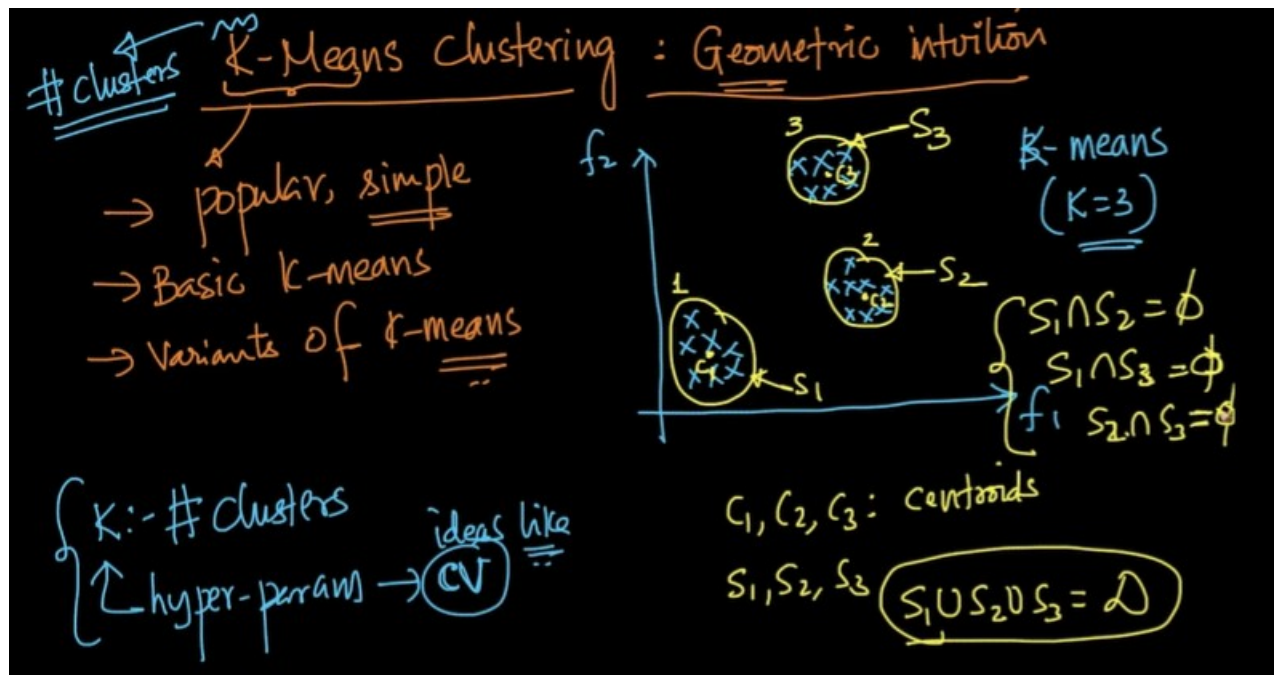 #clusters
K-Means Clustering : Geometric intuition
→ popular, simple
→ Basic K-means
→ Variants of K-means
f2
3
S3
C3
2
S2
C2
1
C1
S1
f1
K-means
(K=3)
S1∩S2=ϕ
S1∩S3=ϕ
S2∩S3=ϕ
K:- #clusters
hyper-params → CV
ideas like
C1, C2, C3: centroids
S1, S2, S3
S1∪S2∪S3 = D